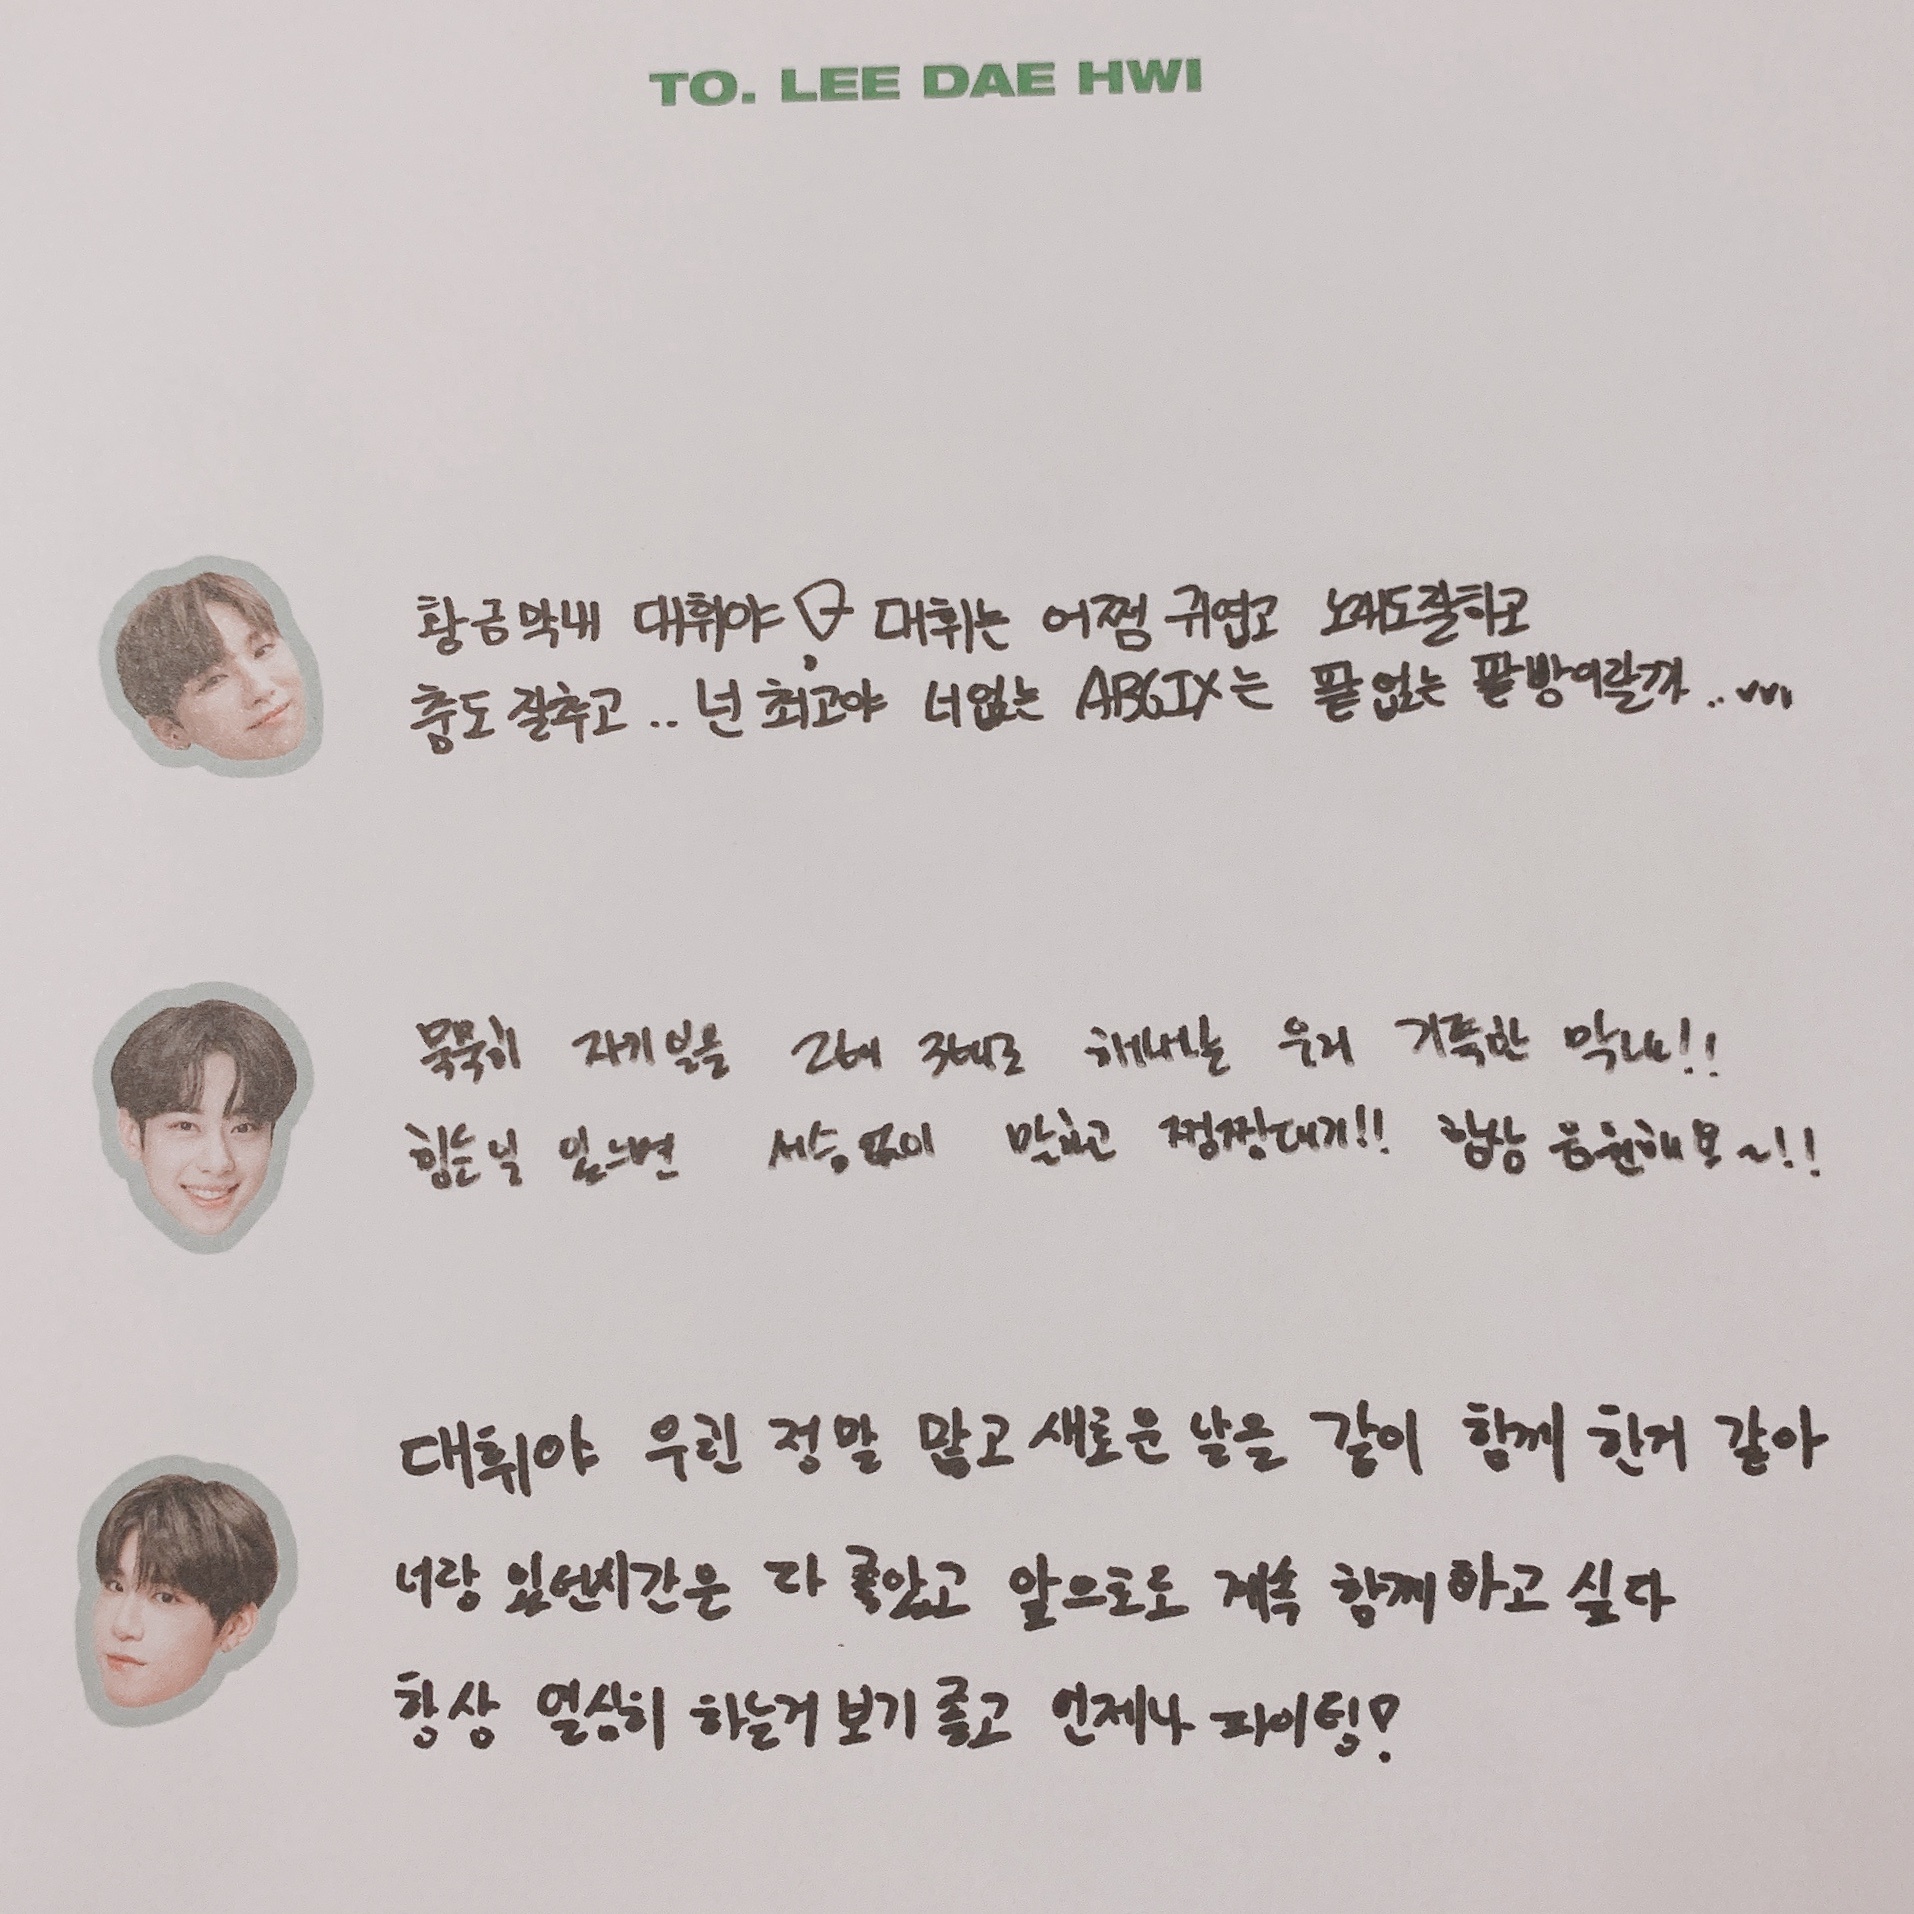 TO. LEE DAE HWI
황금막내 대휘야 대휘는 어쩜 귀엽고 노래도잘하고
춤도 잘추고.. 넌 최고야 너없는 AB6IX는 팥없는 팥빵이랄까..
묵묵히 자기 일을 그때 그때 해내는 우리 기특한 막내!!
힘든일 있으면 서슴없이 말하고 찡찡대기!! 항상 응원해요~!!
대휘야 우린 정말 많고 새로운 날을 같이 함께 한거 같아
너랑 있던시간은 다 좋았고 앞으로도 계속 함께하고 싶다
항상 열심히 하는거 보기 좋고 언제나 파이팅!